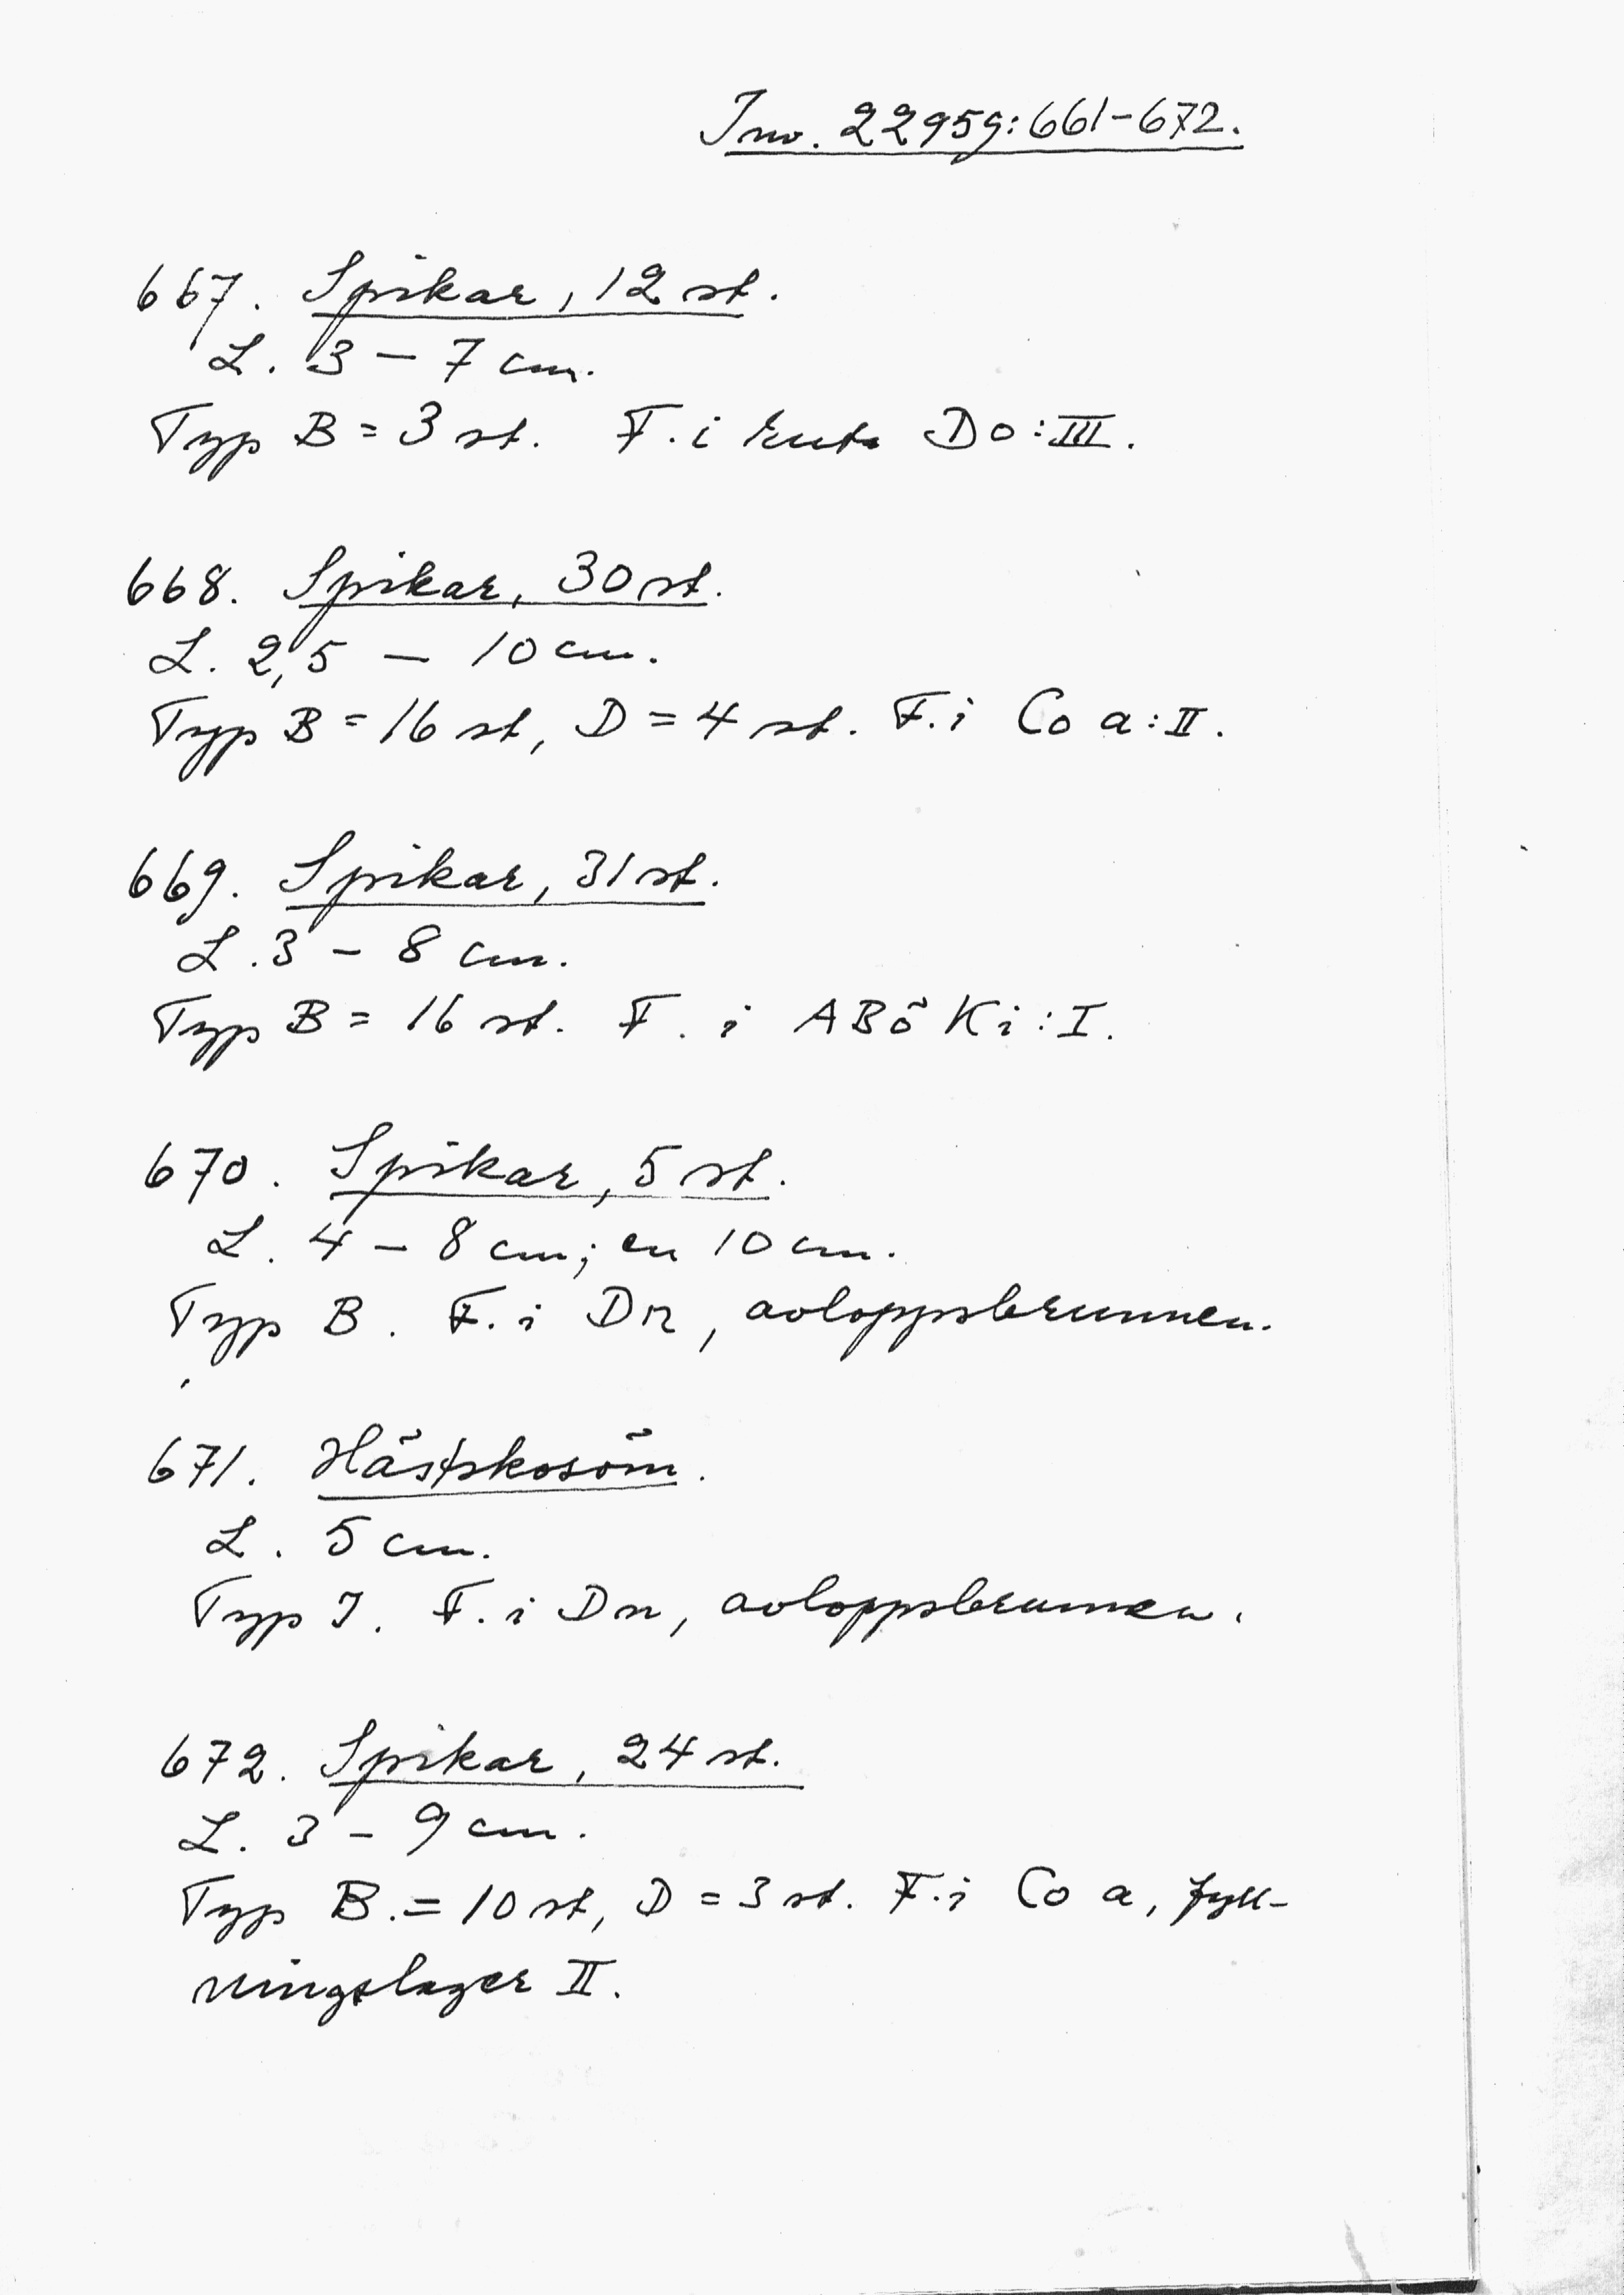 Inv. 22959:661-672.
667. Spikar, 12 st.
L. 3 – 7 cm.
Typ B = 3 st. F. i ruta Do:III.
668. Spikar, 30 st.
L. 2,5 – 10 cm.
Typ B = 16 st, D = 4 st. F. i Co a:II.
669. Spikar, 31 st.
L. 3 – 8 cm.
Typ B = 16 st. F. i ABö Ki:I.
670. Spikar, 5 st.
L. 4 – 8 cm; en 10 cm.
Typ B. F. i Dn, avloppsbrunnen.
671. Hästskosöm.
L. 5 cm.
Typ I. F. i Dn, avloppsbrunnen.
672. Spikar, 24 st.
L. 3 – 9 cm.
Typ B. = 10 st, D = 3 st. F. i Co a, fyll-
ningslager II.